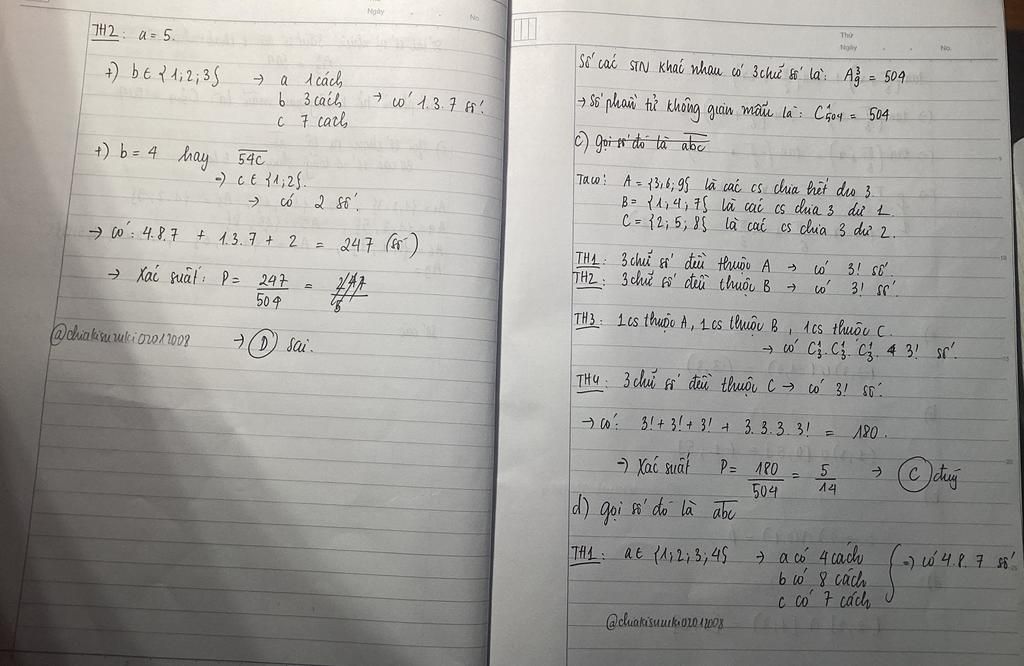 Ngày
No.
TH2: a = 5.
+) b ∈ {1; 2; 3} → a 1 cách
b 3 cách → có 1.3.7 số.
c 7 cách
+) b = 4 hay 54c
→ c ∈ {1; 2}.
→ có 2 số.
→ có: 4.8.7 + 1.3.7 + 2 = 247 (số)
→ Xác suất: P = 247/504 =
@chiakisuzuki02012008 → D sai.
Thứ
Ngày
No.
Số các STN khác nhau có 3 chữ số là: A³₉ = 504
→ Số phần tử không gian mẫu là: C¹₅₀₄ = 504
c) gọi số đó là abc
Ta có: A = {3; 6; 9} là các cs chia hết cho 3.
B = {1; 4; 7} là các cs chia 3 dư 1.
C = {2; 5; 8} là các cs chia 3 dư 2.
TH1: 3 chữ số đều thuộc A → có 3! số.
TH2: 3 chữ số đều thuộc B → có 3! số.
TH3: 1 cs thuộc A, 1 cs thuộc B, 1 cs thuộc C.
→ có C¹₃. C¹₃. C¹₃. 3! số.
TH4: 3 chữ số đều thuộc C → có 3! số.
→ có: 3! + 3! + 3! + 3.3.3.3! = 180.
→ Xác suất P = 180/504 = 5/14 → C đúng
d) gọi số đó là abc
TH1: a ∈ {1; 2; 3; 4} → a có 4 cách
b có 8 cách ⇒ có 4.8.7 số
c có 7 cách
@chiakisuzuki02012008